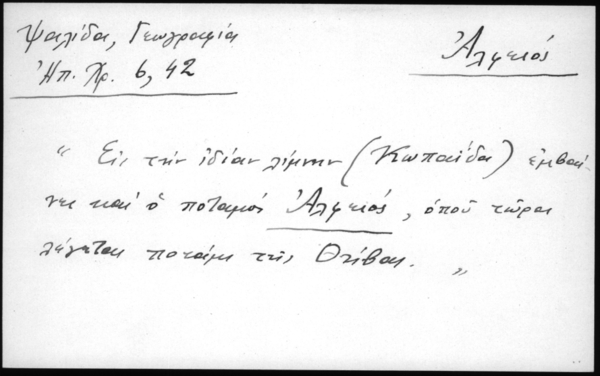 Ψαλίδα, Γεωγραφία
Ἠπ. Χρ. 6, 42
Ἀλφειός
“ Εἰς τὴν ἰδίαν λίμνην (Κωπαΐδα) ἐμβαί-
νει καὶ ὁ ποταμὸς Ἀλφειός, ὁποῦ τῶρα
λέγεται ποτάμι τῆς Θήβας. „